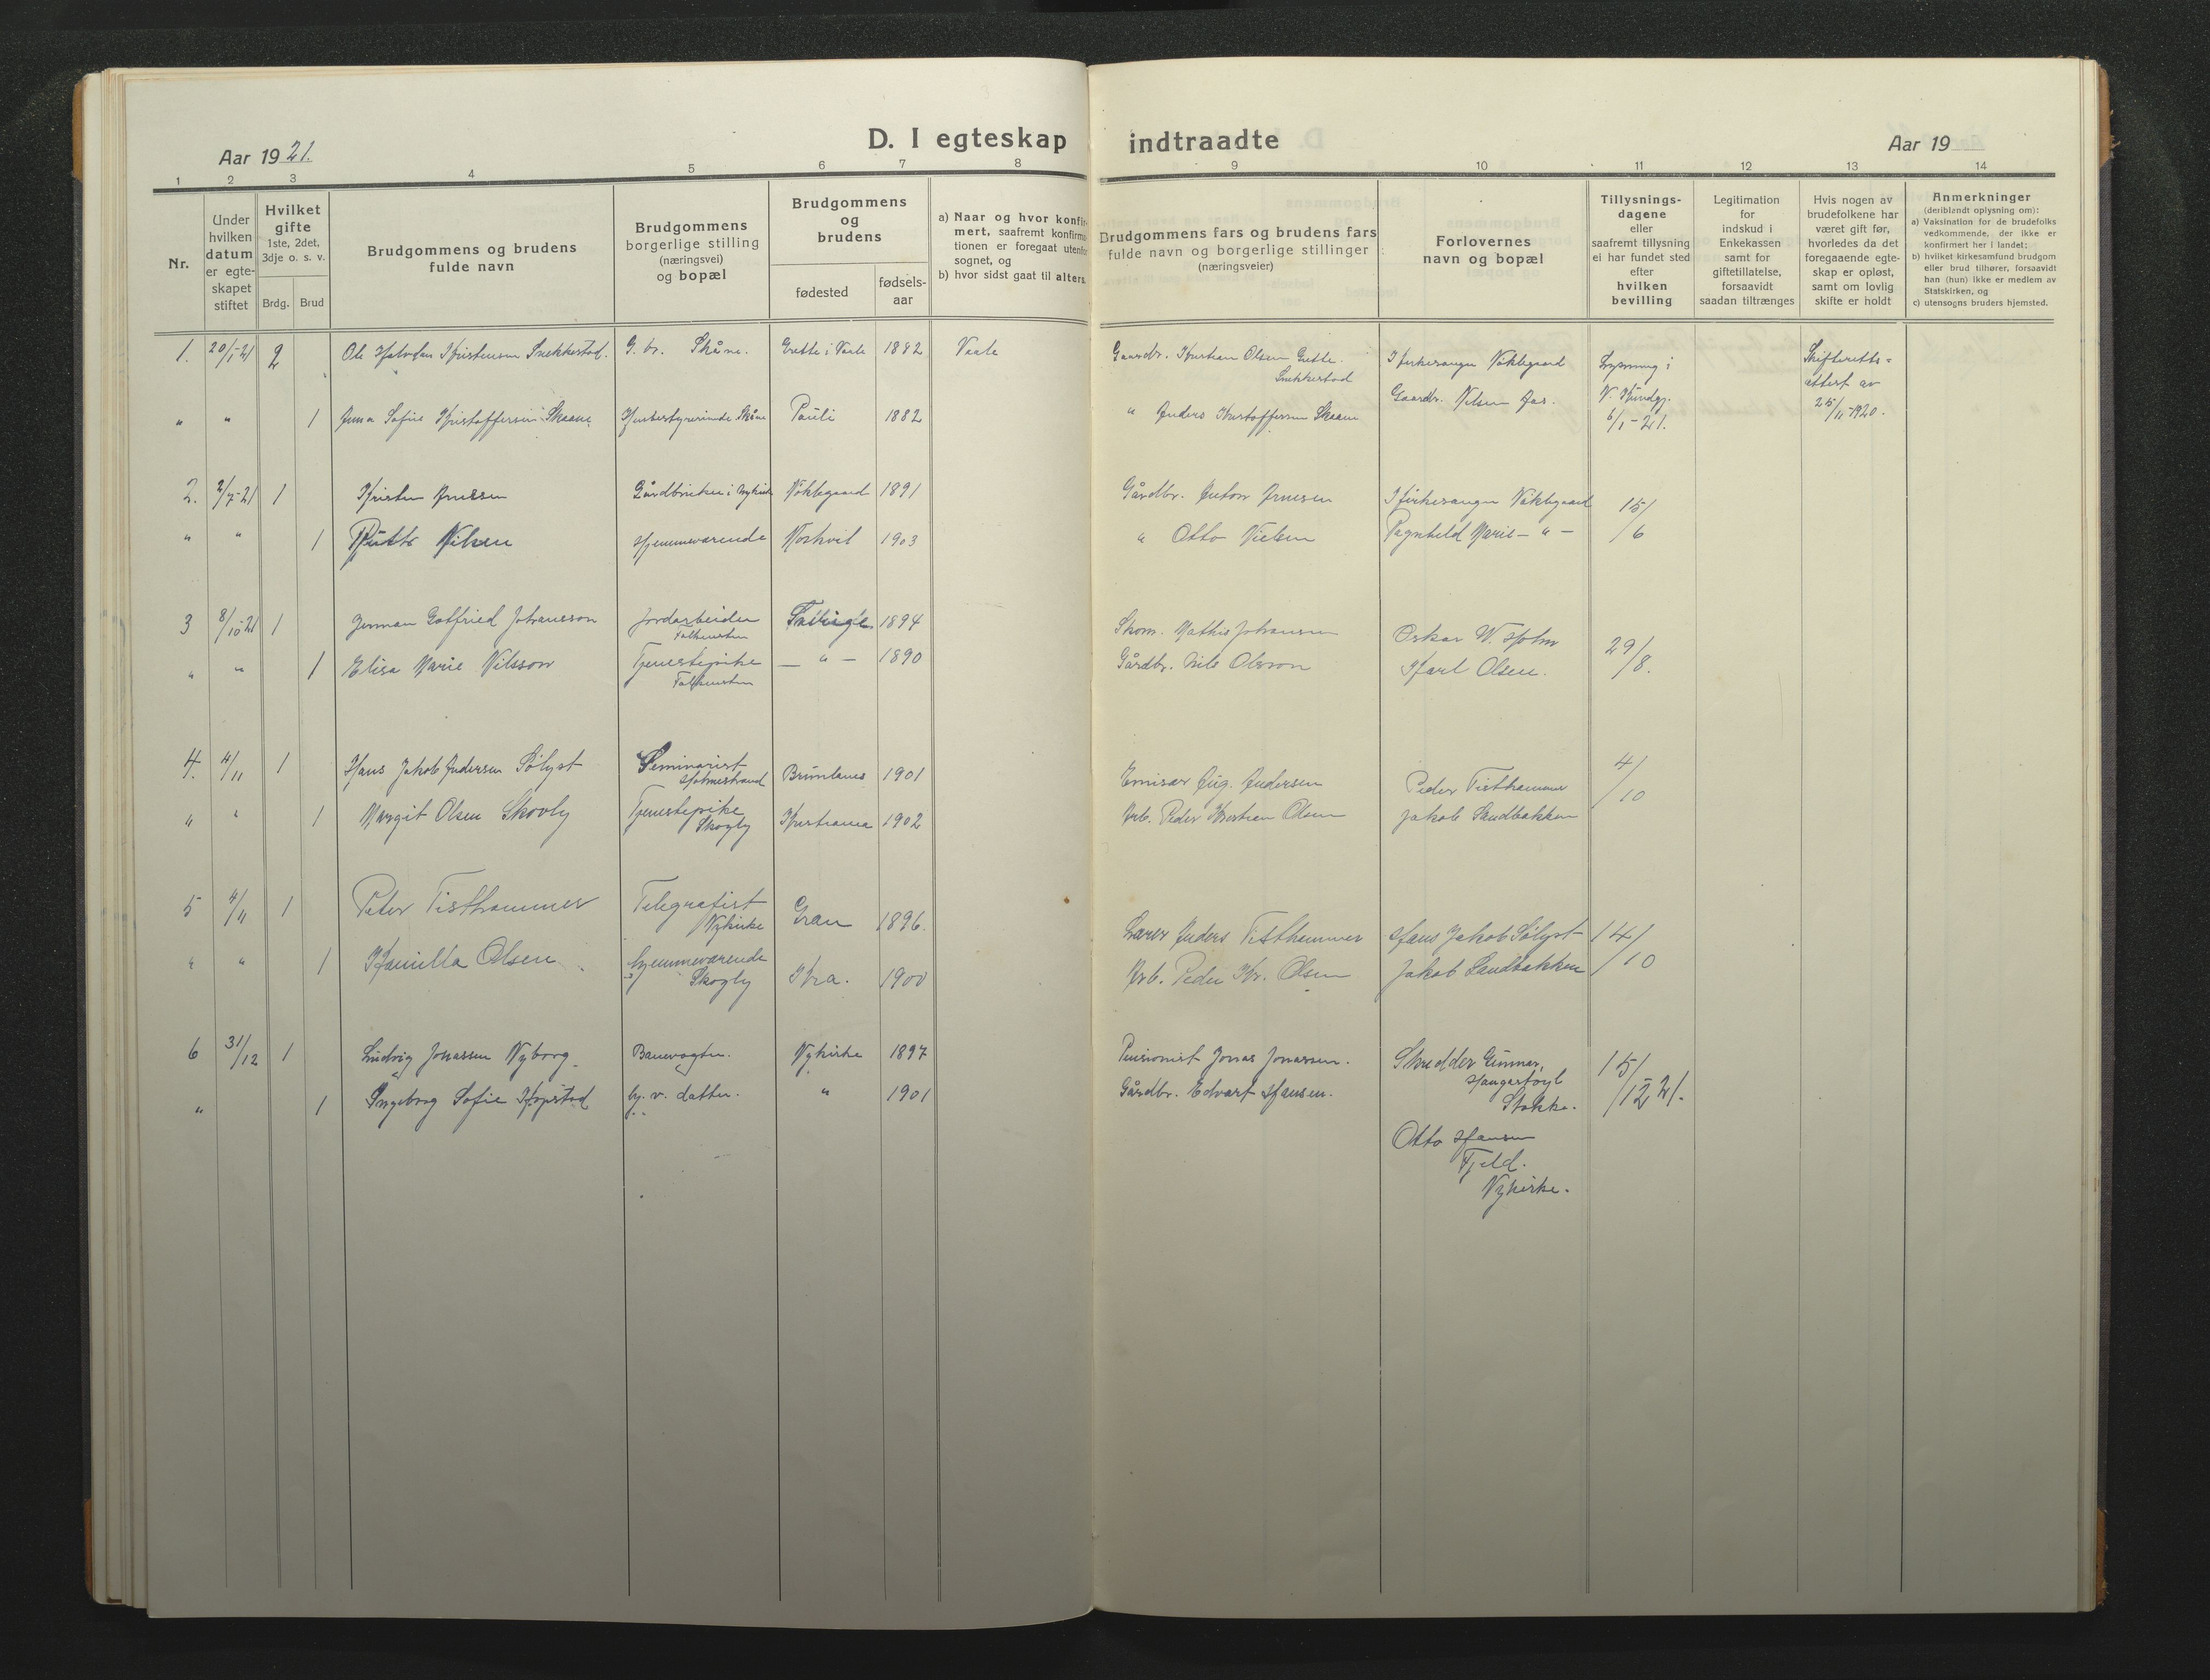 D. I egteskap indtraadte
Aar 1921.
Aar 19
1 2 3 4 5 6 7 8 9 10 11 12 13 14
Nr.
Under hvilken datum er egteskapet stiftet
Hvilket gifte
1ste, 2det, 3dje o. s. v.
Brdg. Brud
Brudgommens og brudens fulde navn
Brudgommens borgerlige stilling (næringsvei) og bopæl
Brudgommens og brudens
fødested
fødsels-aar
a) Naar og hvor konfirmert, saafremt konfirmationen er foregaat utenfor sognet, og
b) hvor sidst gaat til alters.
Brudgommens fars og brudens fars fulde navn og borgerlige stillinger (næringsveier)
Forlovernes navn og bopæl
Tillysnings-dagene eller saafremt tillysning ei har fundet sted efter hvilken bevilling
Legitimation for indskud i Enkekassen samt for giftetillatelse, forsaavidt saadan tiltrænges
Hvis nogen av brudefolkene har været gift før, hvorledes da det foregaaende egteskap er opløst, samt om lovlig skifte er holdt
Anmerkninger
(deriblandt oplysning om):
a) Vaksination for de brudefolks vedkommende, der ikke er konfirmert her i landet;
b) hvilket kirkesamfund brudgom eller brud tilhører, forsaavidt han (hun) ikke er medlem av Statskirken, og
c) utensogns bruders hjemsted.
1. 20/1-21 2 Ole Halvdan Kristensen Snekkestad. G. br. Skåne. Grette i Vaale 1882 Vaale Gaardbr. Kristian Olsen Grette Snekkestad Kirkesanger Nøklegaard Lysning i
" " 1 Anna Sofie Kristoffersen Skaane Husbestyrerinde Skåne Pauli 1882 " Anders Kristoffersen Skaane Gaardbr. Nilsen Aas. N. Kundgj. 6/1-21.
Skifteretts-attest av 25/11-1920.
2. 2/7-21 1 Kristen Arnesen Gårdbruker i Nykirke Nøklegaard 1891 Gårdbr. Anton Arnesen Kirkesanger Nøklegaard 15/6
" " 1 Ruth Nilsen Hjemmeværende Norhvit 1903 " Otto Nielsen Ragnhild Marie - " -
3 8/10-21 1 Herman Gotfried Johansson Jordarbeider Falkensten 1894 Skom. Mathis Johansson Oskar W. Holm 29/8.
" " 1 Elisa Marie Nilsson Tjenestepike Falkensten - " - 1890 Gårdbr. Nils Olsson Karl Olsen.
4. 4/11 1 Hans Jakob Andersen Sølyst Seminarist Holmestrand Brunlanes 1901 Emisær Aug. Andersen Peder Tisthammer 4/10
" " 1 Margit Olsen Skovly Tjenestepike Skogly Kristiania 1902 Arb. Peder Kristian Olsen Jakob Sandbakken
5 4/11 1 Peter Tisthammer Telegrafist Nykirke Gran 1896. Lærer Anders Tisthammer Hans Jakob Sølyst 14/10
" " 1 Kamilla Olsen Hjemmeværende Skogly Kra. 1900 Arb. Peder Kr. Olsen Jakob Sandbakken
6 31/12 1 Ludvig Jonassen Nyborg. Banevogter. Nykirke 1897 Pensionist Jonas Jonassen. Skredder Gunnar, Stokke. 15/12 21.
" 1 Ingeborg Sofie Kopstad hj. v. datter. " 1901 Gårdbr. Edvart Hansen.
Otto Hansen
Fjeld.
Nykirke.